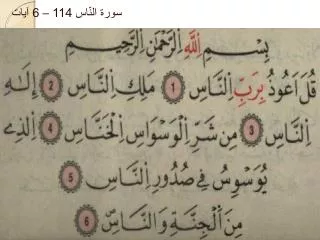 سورة النّاس 114 – 6 آيات
بِسْمِ اللَّهِ الرَّحْمَٰنِ الرَّحِيمِ
قُلْ اَعُوذُ بِرَبِّ النَّاسِ 1 مَلِكِ النَّاسِ 2 اِلٰهِ
النَّاسِ 3 مِنْ شَرِّ الْوَسْوَاسِ الْخَنَّاسِ 4 اَلَّذِي
يُوَسْوِسُ فِي صُدُورِ النَّاسِ 5
مِنَ الْجِنَّةِ وَالنَّاسِ 6